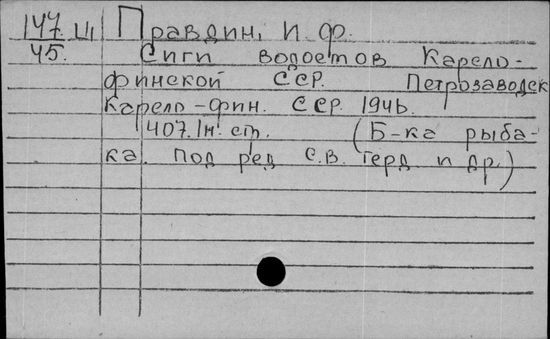 147. Ш Правдин, И. Ф.
45. Сиги водоемов Карело-
финской ССР. Петрозаводск
Карело-фин. ССР. 1946.
407. 1н. ст. (Б-ка рыба-
ка. под ред С.В. Герд. и др.)